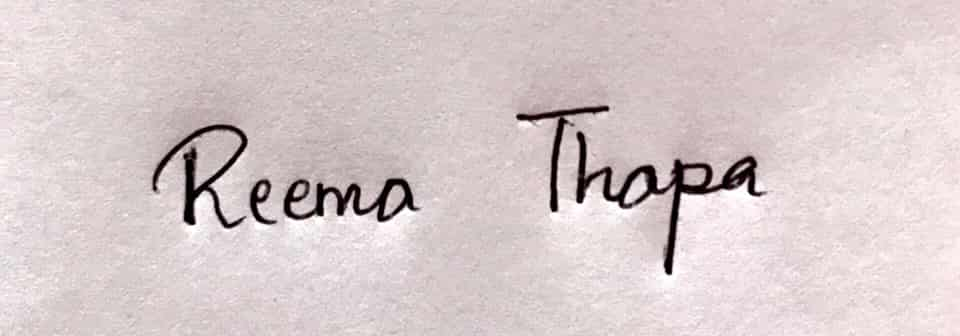 Reema Thapa